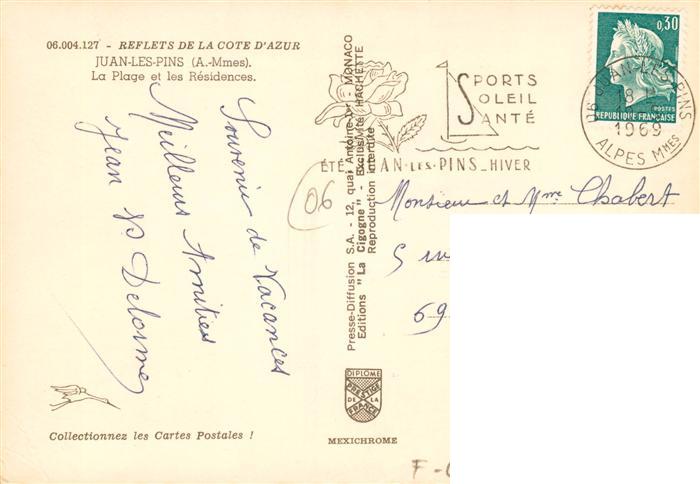 06.004.127 - REFLETS DE LA COTE D'AZUR
JUAN-LES-PINS (A.-Mmes).
La Plage et les Résidences.
Souvenir de Vacances
Meilleurs Amitiés
Jean Delorme
Collectionnez les Cartes Postales !
Presse-Diffusion S.A. - 12, quai Antoine-Ier - MONACO
Editions "La Cigogne" - Exclusivité HACHETTE
Reproduction interdite
DIPLOME
PRESTIGE
DE LA
FRANCE
MEXICHROME
SPORTS
SOLEIL
SANTÉ
ÉTÉ JUAN-LES-PINS_HIVER
0,30
POSTES
REPUBLIQUE FRANÇAISE
06 JUAN-LES-PINS
18 H
1969
ALPES MMES
06
Monsieur et Mme Chabert
5
69
F-